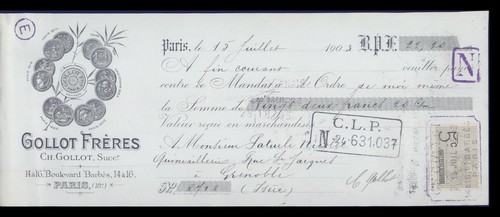 E
Paris, le 15 Juillet 1903 B.P.F. 22,20
A fin courant veuillez payer
contre ce Mandat à d'Ordre de moi même
la Somme de Vingt deux francs 20 Cs
Valeur reçue en marchandises
A Monsieur
Quincaillerie, Rue St Jacques
à Grenoble
(Isère)
GOLLOT FRÈRES
CH. GOLLOT, Succr.
14 & 16, Boulevard Barbès, 14 & 16.
PARIS, (18e)
N
C.L.P.
5c